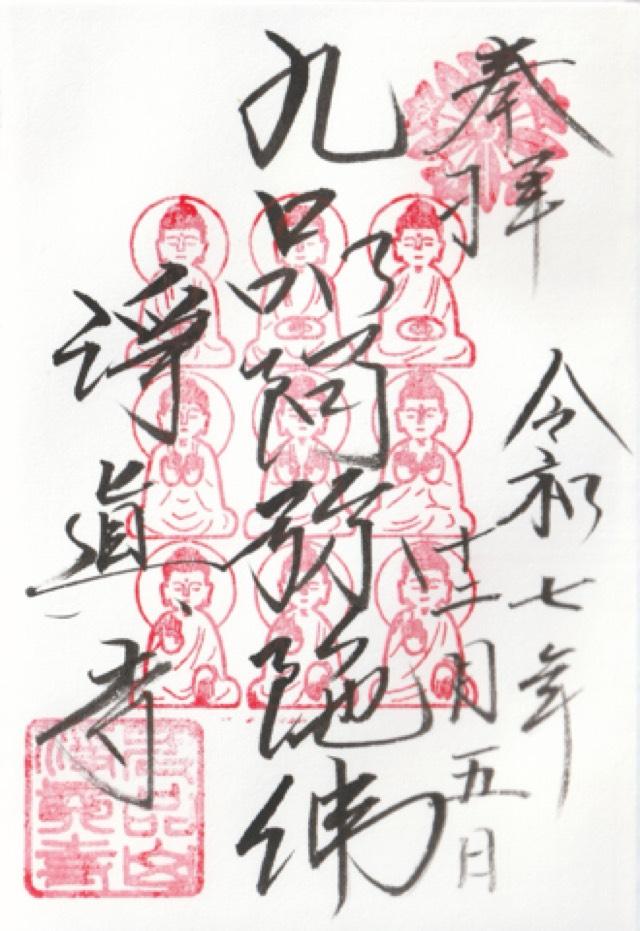 奉拝
令和七年
十二月五日
九品阿弥陀佛
浄真寺